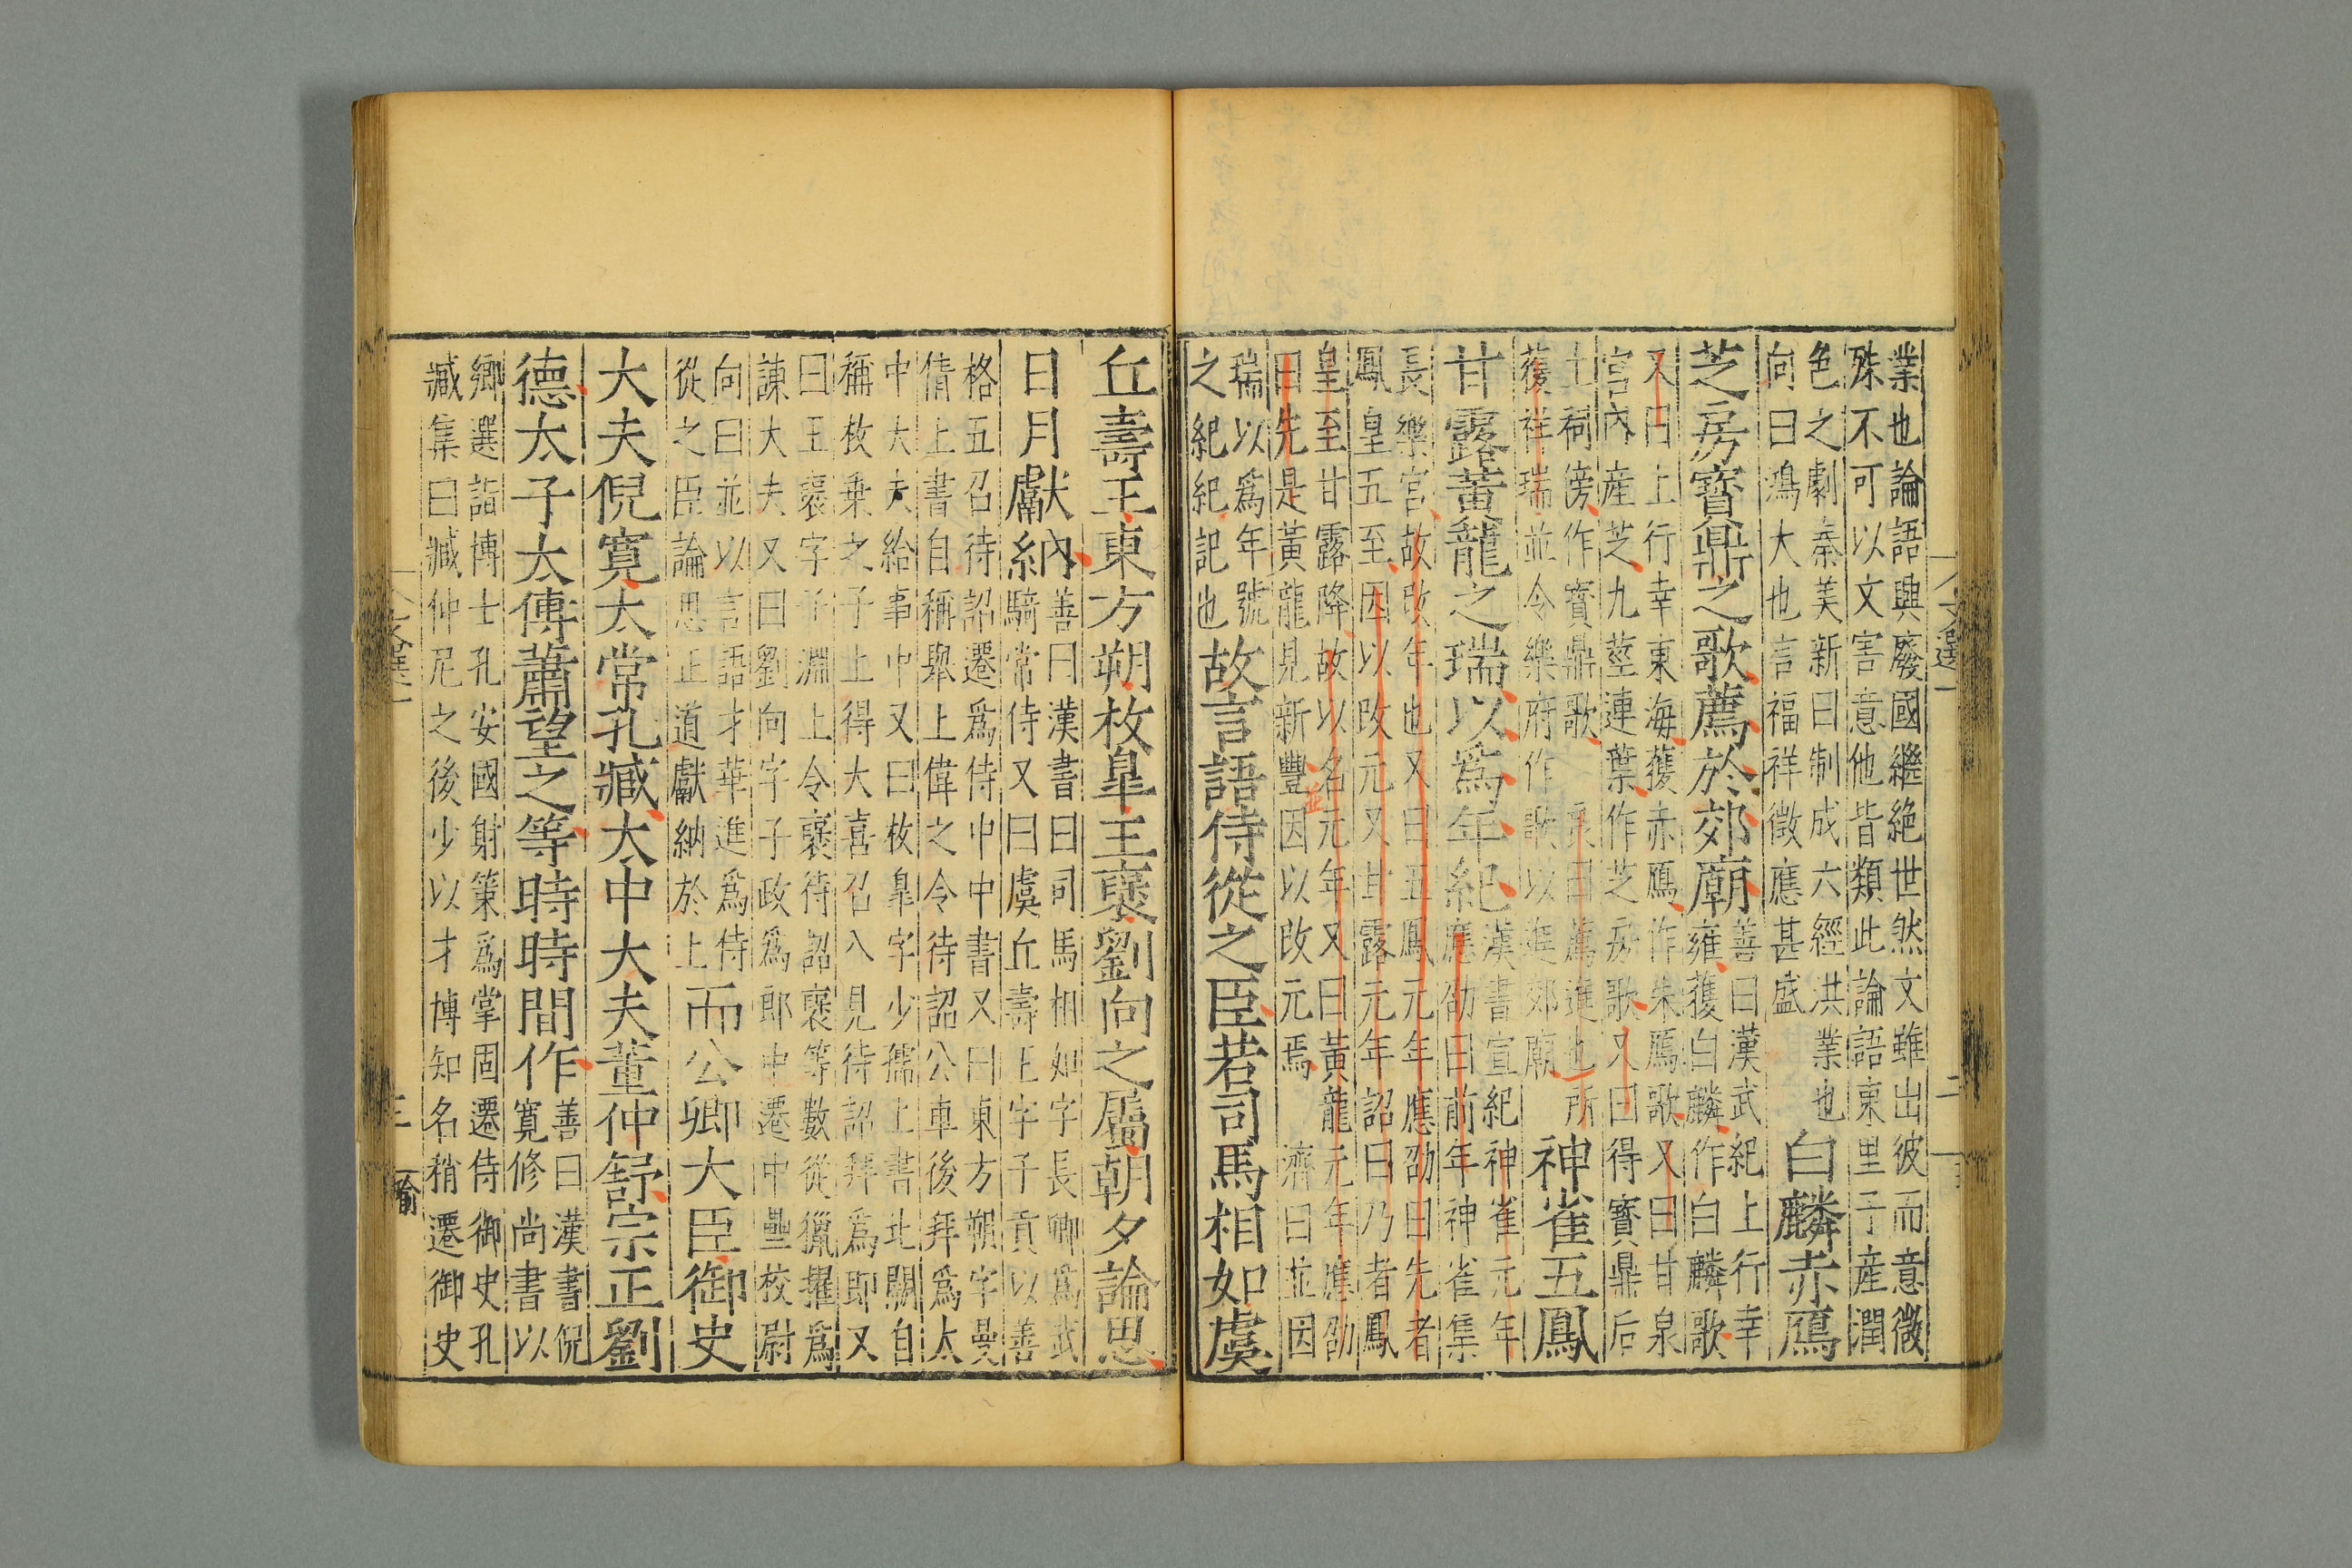 業也論語興廢國繼絶世然文雖出彼而意微
殊不可以文害意他皆類此論語東里子産潤
色之劇秦美新曰制成六經洪業也
向曰鴻大也言福祥徵應甚盛
白麟赤鴈
芝房寳鼎之歌薦於郊廟
善曰漢武紀上行幸
雍獲白麟作白麟歌
又曰上行幸東海獲赤鴈作朱鴈歌又曰甘泉
宮内産芝九莖連葉作芝房歌又曰得寳鼎后
土祠傍作寳鼎歌 良曰薦進也所
獲祥瑞並令樂府作歌以進郊廟
神雀五鳳
甘露黄龍之瑞以爲年紀
漢書宣紀神雀元年
應劭曰前年神雀集
長樂宮故改年也又曰五鳳元年應劭曰先者
鳳皇五至因以改元又甘露元年詔曰乃者鳳
皇至甘露降故以名元年又曰黄龍元年應劭
曰先是黄龍見新豐因以改元焉 濟曰並因
瑞以爲年號
之紀紀記也
故言語侍從之臣若司馬相如虞
丘壽王東方朔枚臯王襃劉向之屬朝夕論思
日月獻納
善曰漢書曰司馬相如字長卿爲武
騎常侍又曰虞丘壽王字子貢以善
格五召待詔遷爲侍中中書又曰東方朔字曼
倩上書自稱舉上偉之令待詔公車後拜爲太
中大夫給事中又曰枚臯字少孺上書北闕自
稱枚乗之子上得大喜召入見待詔拜爲郎又
曰王襃字子淵上令襃待詔襃等數從獵擢爲
諫大夫又曰劉向字子政爲郎中遷中壘校尉
向曰並以言語才華進爲侍
從之臣論思正道獻納於上
而公卿大臣御史
大夫倪寛太常孔臧大中大夫董仲舒宗正劉
德太子太傅蕭望之等時時間作
善曰漢書倪
寛修尚書以
郷選詣博士孔安國射策爲掌固遷侍御史孔
臧集曰臧仲尼之後少以才博知名稍遷御史
文選一
二
三